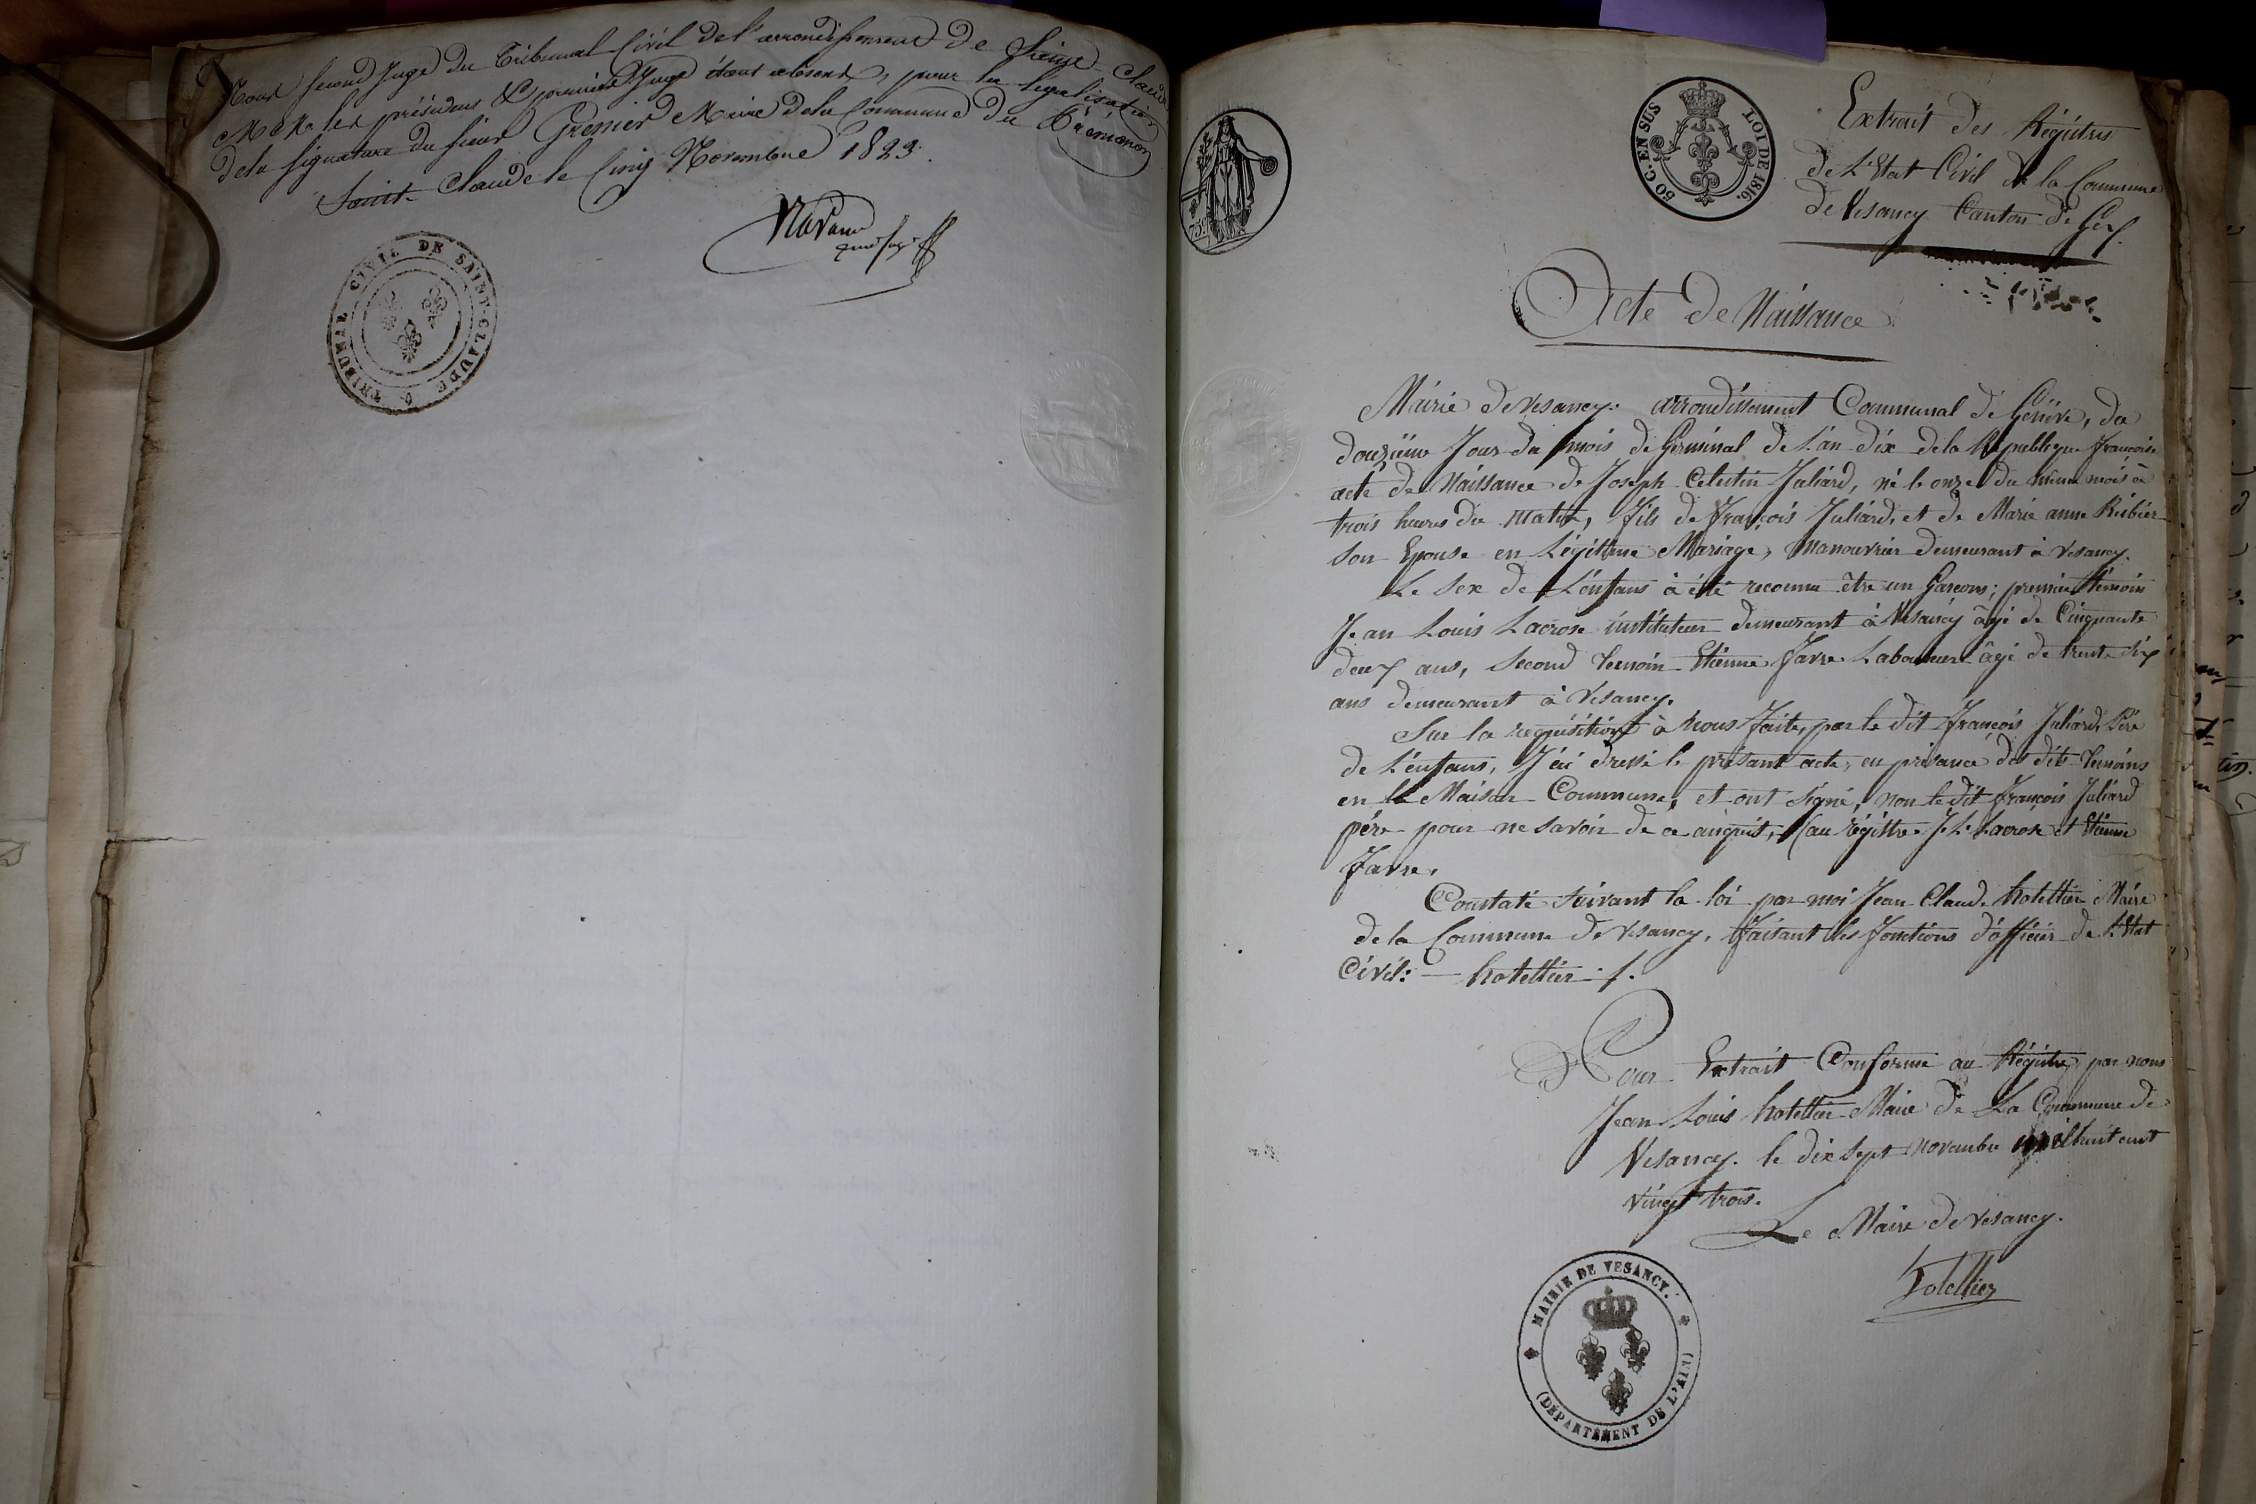 Nous second Juge du Tribunal Civil de l'arrondissement de Saint-Claude
MM. les président & premier Juge étant absents, pour la légalisation
de la signature du sieur Grenier Maire de la Commune de Prémanon
Saint-Claude le Cinq Novembre 1823.
TRIBUNAL CIVIL DE SAINT-CLAUDE
75
50 C. EN SUS LOI DE 1816.
Extrait des Régistres
de L'Etat Civil de la Commune
de Vesancy Canton de Gex.
Acte de Naissance
Mairie de Vesancy. arrondissement Communal de Genève, du
douzième Jour du mois de Germinal de l'an dix de la République françoise
acte de Naissance de Joseph Celestin Juliard, né le onze du même mois à
trois heures du matin, fils de François Juliard, et de Marie anne
son Epouse en Légitime Mariage, manouvrier demeurant à Vesancy.
Le sexe de L'enfans à été reconnu être un Garcons; premier témoin
Jean Louis Lacrose instituteur demeurant à Vésancy âgé de Cinquante
deux ans, Second temoin Etienne Favre Laboureur âgé de trente six
ans demeurant à Vesancy.
Sur la requisition à nous faite, par le dit François Juliard, Père
de L'enfans, J'ai dressé le présant acte, en présance des dits temoins
en la Maison Commune, et ont signé, non le dit François Juliard
pére pour ne savoir de ce anquit, (au régistre J. L. Lacrose et Etienne
Favre.
Constaté suivant la loi par moi Jean Claude hotellier Maire
de la Commune de Vesancy, faisant les fonctions d'officier de L'Etat
Civil: — hotellier
Pour Extrait Conforme au Régistre, par nous
Jean Louis hotellier Maire de La Commune de
Vesancy. le dix sept novembre mil huit cent
vingt trois.
Le Maire de Vesancy.
hotellier
MAIRIE DE VESANCY.
(DÉPARTEMENT DE L'AIN)